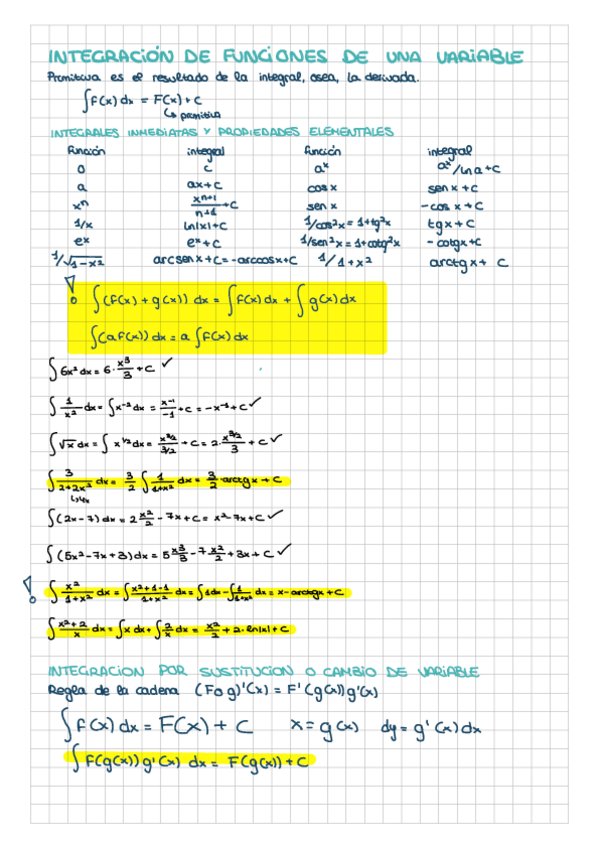 INTEGRACIÓN DE FUNCIONES DE UNA VARIABLE
Primitiva es el resultado de la integral, osea, la derivada.
∫f(x) dx = F(x) + C
↳ primitiva
INTEGRALES INMEDIATAS Y PROPIEDADES ELEMENTALES
función integral función integral
0 C aˣ aˣ/ln a + C
a ax + C cos x sen x + C
xⁿ xⁿ⁺¹/n+1 + C sen x - cos x + C
1/x ln|x| + C 1/cos²x = 1+tg²x tg x + C
eˣ eˣ + C 1/sen²x = 1+cotg²x - cotgx + C
1/√1-x² arcsen x + C = -arccos x + C 1/1+x² arctg x + C
! ∫(f(x) + g(x)) dx = ∫f(x) dx + ∫g(x) dx
∫(a f(x)) dx = a ∫f(x) dx
∫6x² dx = 6 · x³/3 + C ✓
∫1/x² dx = ∫x⁻² dx = x⁻¹/-1 + C = -x⁻¹ + C ✓
∫√x dx = ∫x^1/2 dx = x^3/2 / 3/2 + C = 2 · x^3/2 / 3 + C ✓
∫3/2+2x² dx = 3/2 ∫1/1+x² dx = 3/2 · arctg x + C
∫(2x-7) dx = 2 x²/2 - 7x + C = x² - 7x + C ✓
∫(5x²-7x+3) dx = 5 x³/3 - 7 x²/2 + 3x + C ✓
! ∫x²/1+x² dx = ∫x²+1-1/1+x² dx = ∫1 dx - ∫1/1+x² dx = x - arctgx + C
∫x²+2/x dx = ∫x dx + ∫2/x dx = x²/2 + 2 · ln|x| + C
INTEGRACION POR SUSTITUCION O CAMBIO DE VARIABLE
Regla de la cadena (F o g)'(x) = F'(g(x)) g'(x)
∫f(x) dx = F(x) + C x = g(x) dy = g'(x) dx
∫f(g(x)) g'(x) dx = F(g(x)) + C